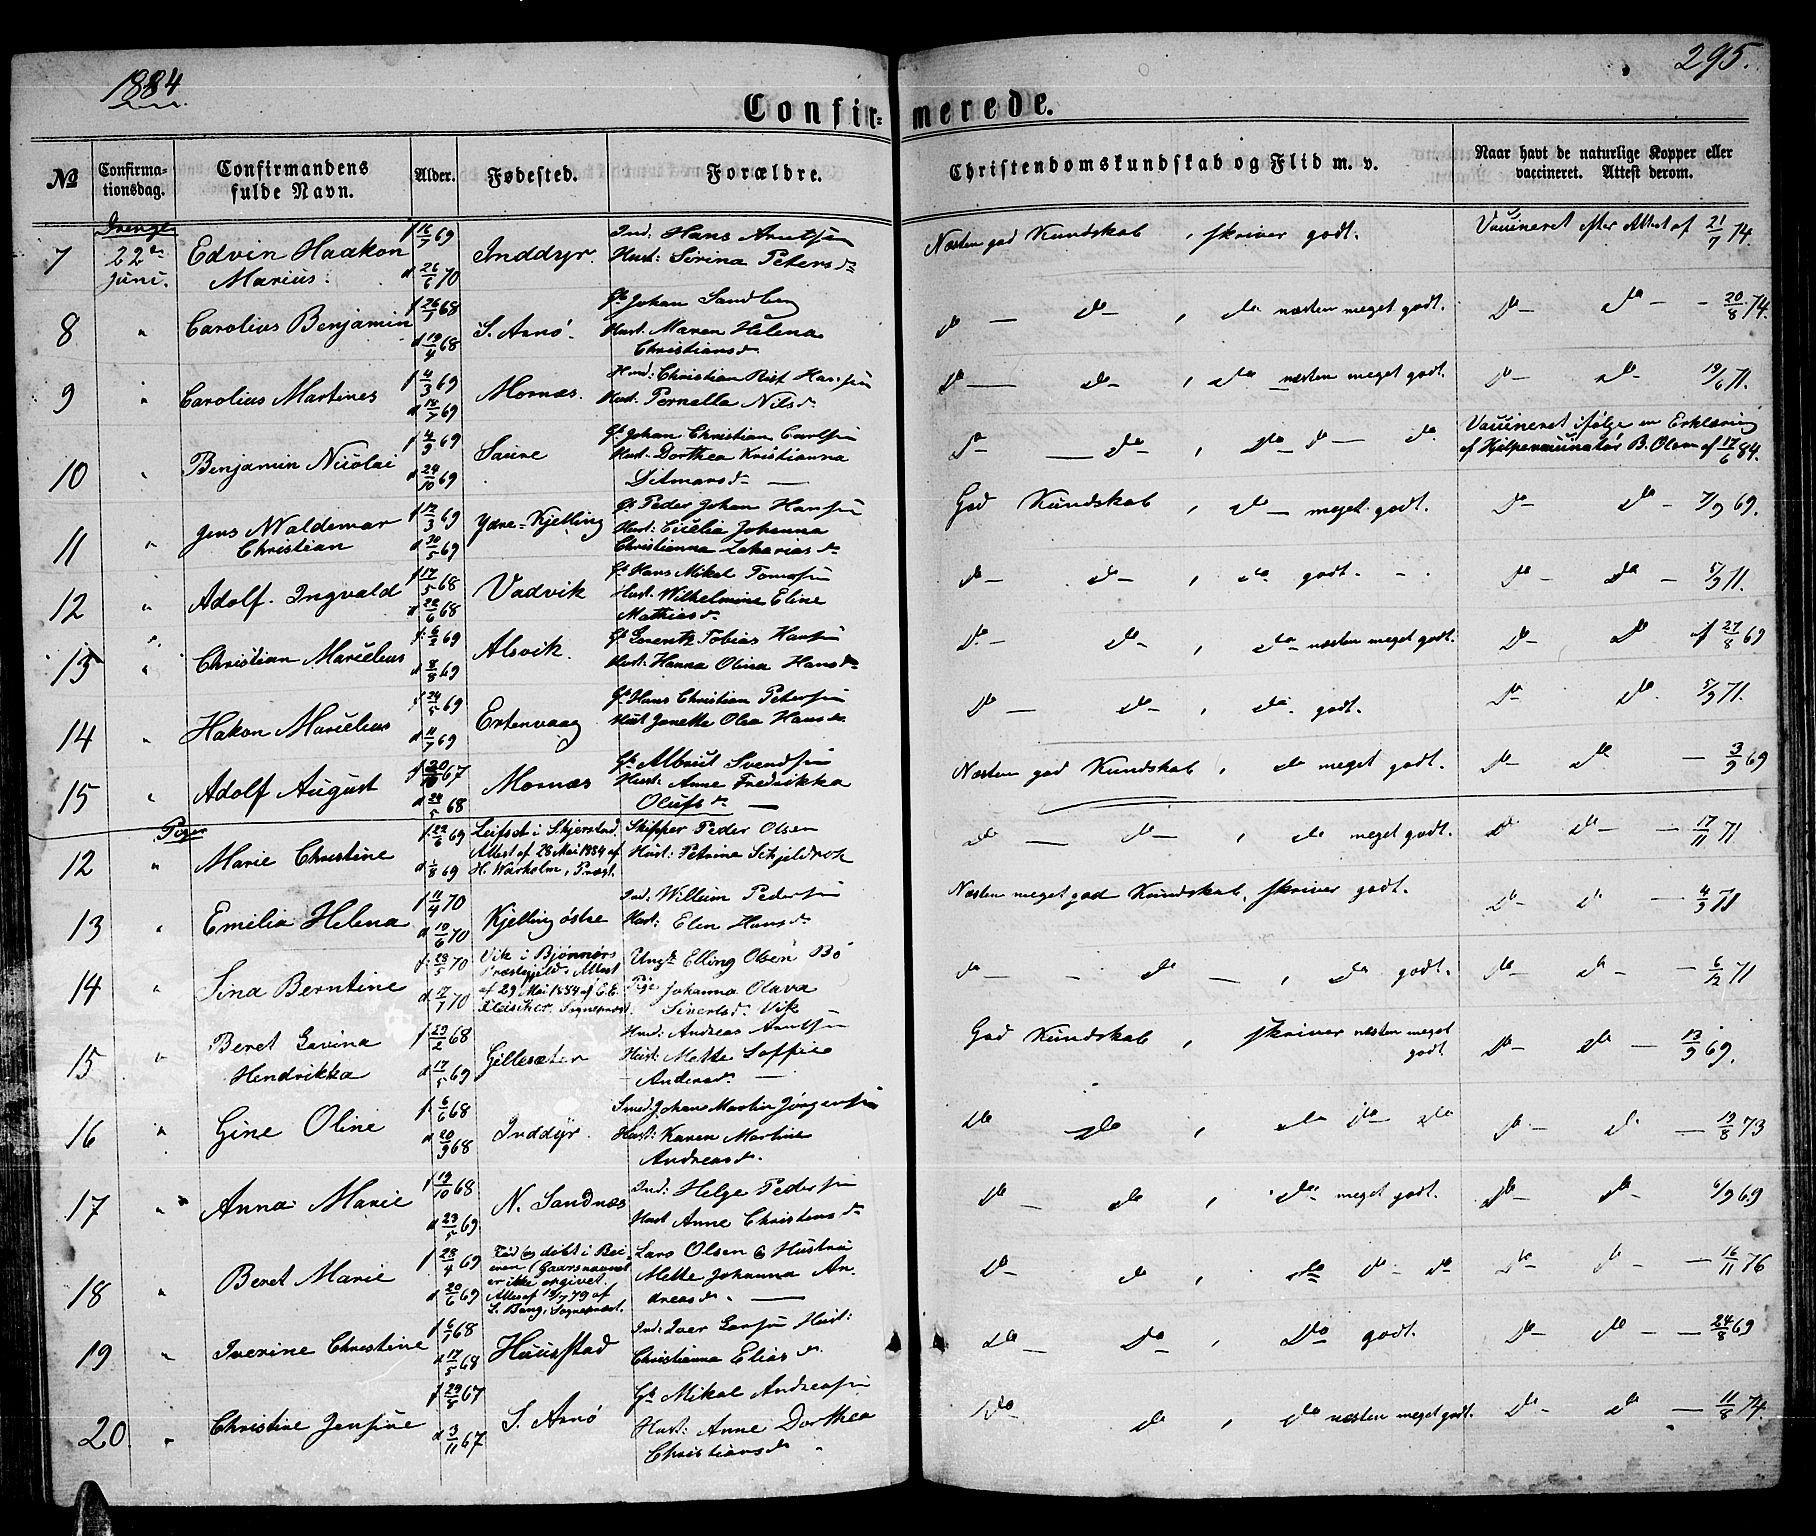 1884
295.
Confir- merede.
No
Confirma-
tionsdag.
Confirmandens
fulde Navn.
Alder.
Fødested.
Forældre.
Christendomskundskab og Flid m. v.
Naar havt de naturlige Kopper eller
vaccineret. Attest derom.
Drenge
7 22de Juni. Edvin Haakon Marius. f 16/7 69 d 26/6 70 Inddyr. Ind: Hans Arntsen Hust: Sirina Petersdr Næsten god Kundskab, skriver godt. Vaccineret efter Attest af 21/7 74.
8 " Carolius Benjamin f 26/1 68 d 19/4 68 S. Arnö. Gb Johan Sandberg Hust. Maren Helena Christiansdr Do — Do — , Do næsten meget godt. Do — Do — 20/8 74.
9 " Carolius Martines f 4/3 69 d 18/7 69 Mornæs. Hmd: Christian Rist Hansen Hust. Pernella Nilsdr Do — Do — , Do næsten meget godt. Do — Do — 19/6 71.
10 " Benjamin Nicolai f 4/9 69 d 24/10 69 Saure Gb Johan Christian Carlsen Hust: Dorthea Kristianna Ditmarsdr — Do — Do , Do Do — Do Vaccineret ifølge en Erklæring af Hjelpevaccinatør B. Olsen af 17/6 84.
11 " Jens Waldemar Christian f 12/3 69 d 30/5 69 Ydre-Kjelling Gb Peder Johan Hansen Hust: Cicilia Johanna Christianna Zakariasdr God Kundskab , Do — meget godt. Do — Do — 7/9 69.
12 " Adolf Ingvald f 17/5 68 d 28/6 68 Vadvik Gb Hans Mikal Tomasen Hust: Wilhelmine Eline Mathiasdr Do — Do — , Do godt. Do — Do — 5/9 71.
13 " Christian Marcelius f. 6/2 69 d 8/8 69 Alsvik. Gb Lorentz Tobias Hansen Hust: Hanna Olina Hansdr Do — Do — , Do — næsten meget godt. Do — Do af 27/8 69
14 " Hakon Marcelius f 24/5 69 d 11/7 69 Ertenvaag Gb Hans Christian Petersen Hust Janette Olea Hansdr Do — Do — , Do. godt. Do — Do. 5/9 71.
15 " Adolf August f 20/10 67 d 24/5 68 Mornæs Gb Albrict Svendsen Hust: Anne Fredrikka Olufsdr — Næsten god Kundskab , Do meget godt. Do — Do — 3/9 69
Piger
12 " Marie Christine f 22/6 69 d 1/8 69 Leifset i Skjerstad. Attest af 28 Mai 1884 af H. Warholm, Præst. Skipper Peder Olsen Hust: Petrine Schjeldrok Do — Do — , Do meget godt. Do Do — 17/11 71
13 " Emelia Helena f 11/4 70 d 10/6 70 Kjelling østre Ind: Willum Pedersen Hust: Elen Hansdr Næsten meget god Kundskab, skriver godt. Do — Do — 4/9 71
14 " Sina Berntine f. 23/5 70 d. 17/7 70 Vik i Bjønnørs Præstegjeld, Attest af 29 Mai 1884 af Sognepræst. Ungk Elling Olsen Bö Pige Johanna Olava Sivertsdr Vik Do — Do — , Do godt. Do — Do — 6/12 71
15 " Beret Gurina Hendrikka f 29/2 68 d 17/5 69 Gillesæter Hmd: Andreas Arntsen Hust: Mette Soffie Andersdr — God Kundskab , skriver næsten meget godt Do — Do — 13/9 69.
16 " Gine Oline f. 6/6 68 d 20/9 68 Inddyr. Smed Johan Martin Jörgensen Hust: Karen Martine Andreasdr. Do Do , Do Do — Do Do — Do. — 19/8 73
17 " Anna Marie f 19/10 68 d 23/5 69 N. Sandnæs Ind: Helge Pedersen Hust Anne Christensdr Do — Do , Do meget godt. Do — Do — 6/9 69
18 " Beret Marie f 28/4 69 d 20/6 69 Fød og døbt i Beieren (Gaardsnavnet er ikke opgivet. Attest af 18/7 79 af S. Bang, Sognepræst. Lars Olsen & Hustru Mette Johanna Andreasdr. — Do — Do , Do Do — Do Do — Do — 16/11 76
19 " Iverine Christine f 6/1 68 d 17/5 68 Huusstad Ind: Iver Larsen Hust: Christianna Eliasdr Do — Do , Do godt. Do — Do — 24/8 69
20 " Christine Jensine f 29/8 67 d 3/11 67 S. Arnö Gb Mikal Andreasen Hust: Anne Dorthea Christiansdr Do — Do , Do næsten meget godt. Do — Do — 11/8 74.